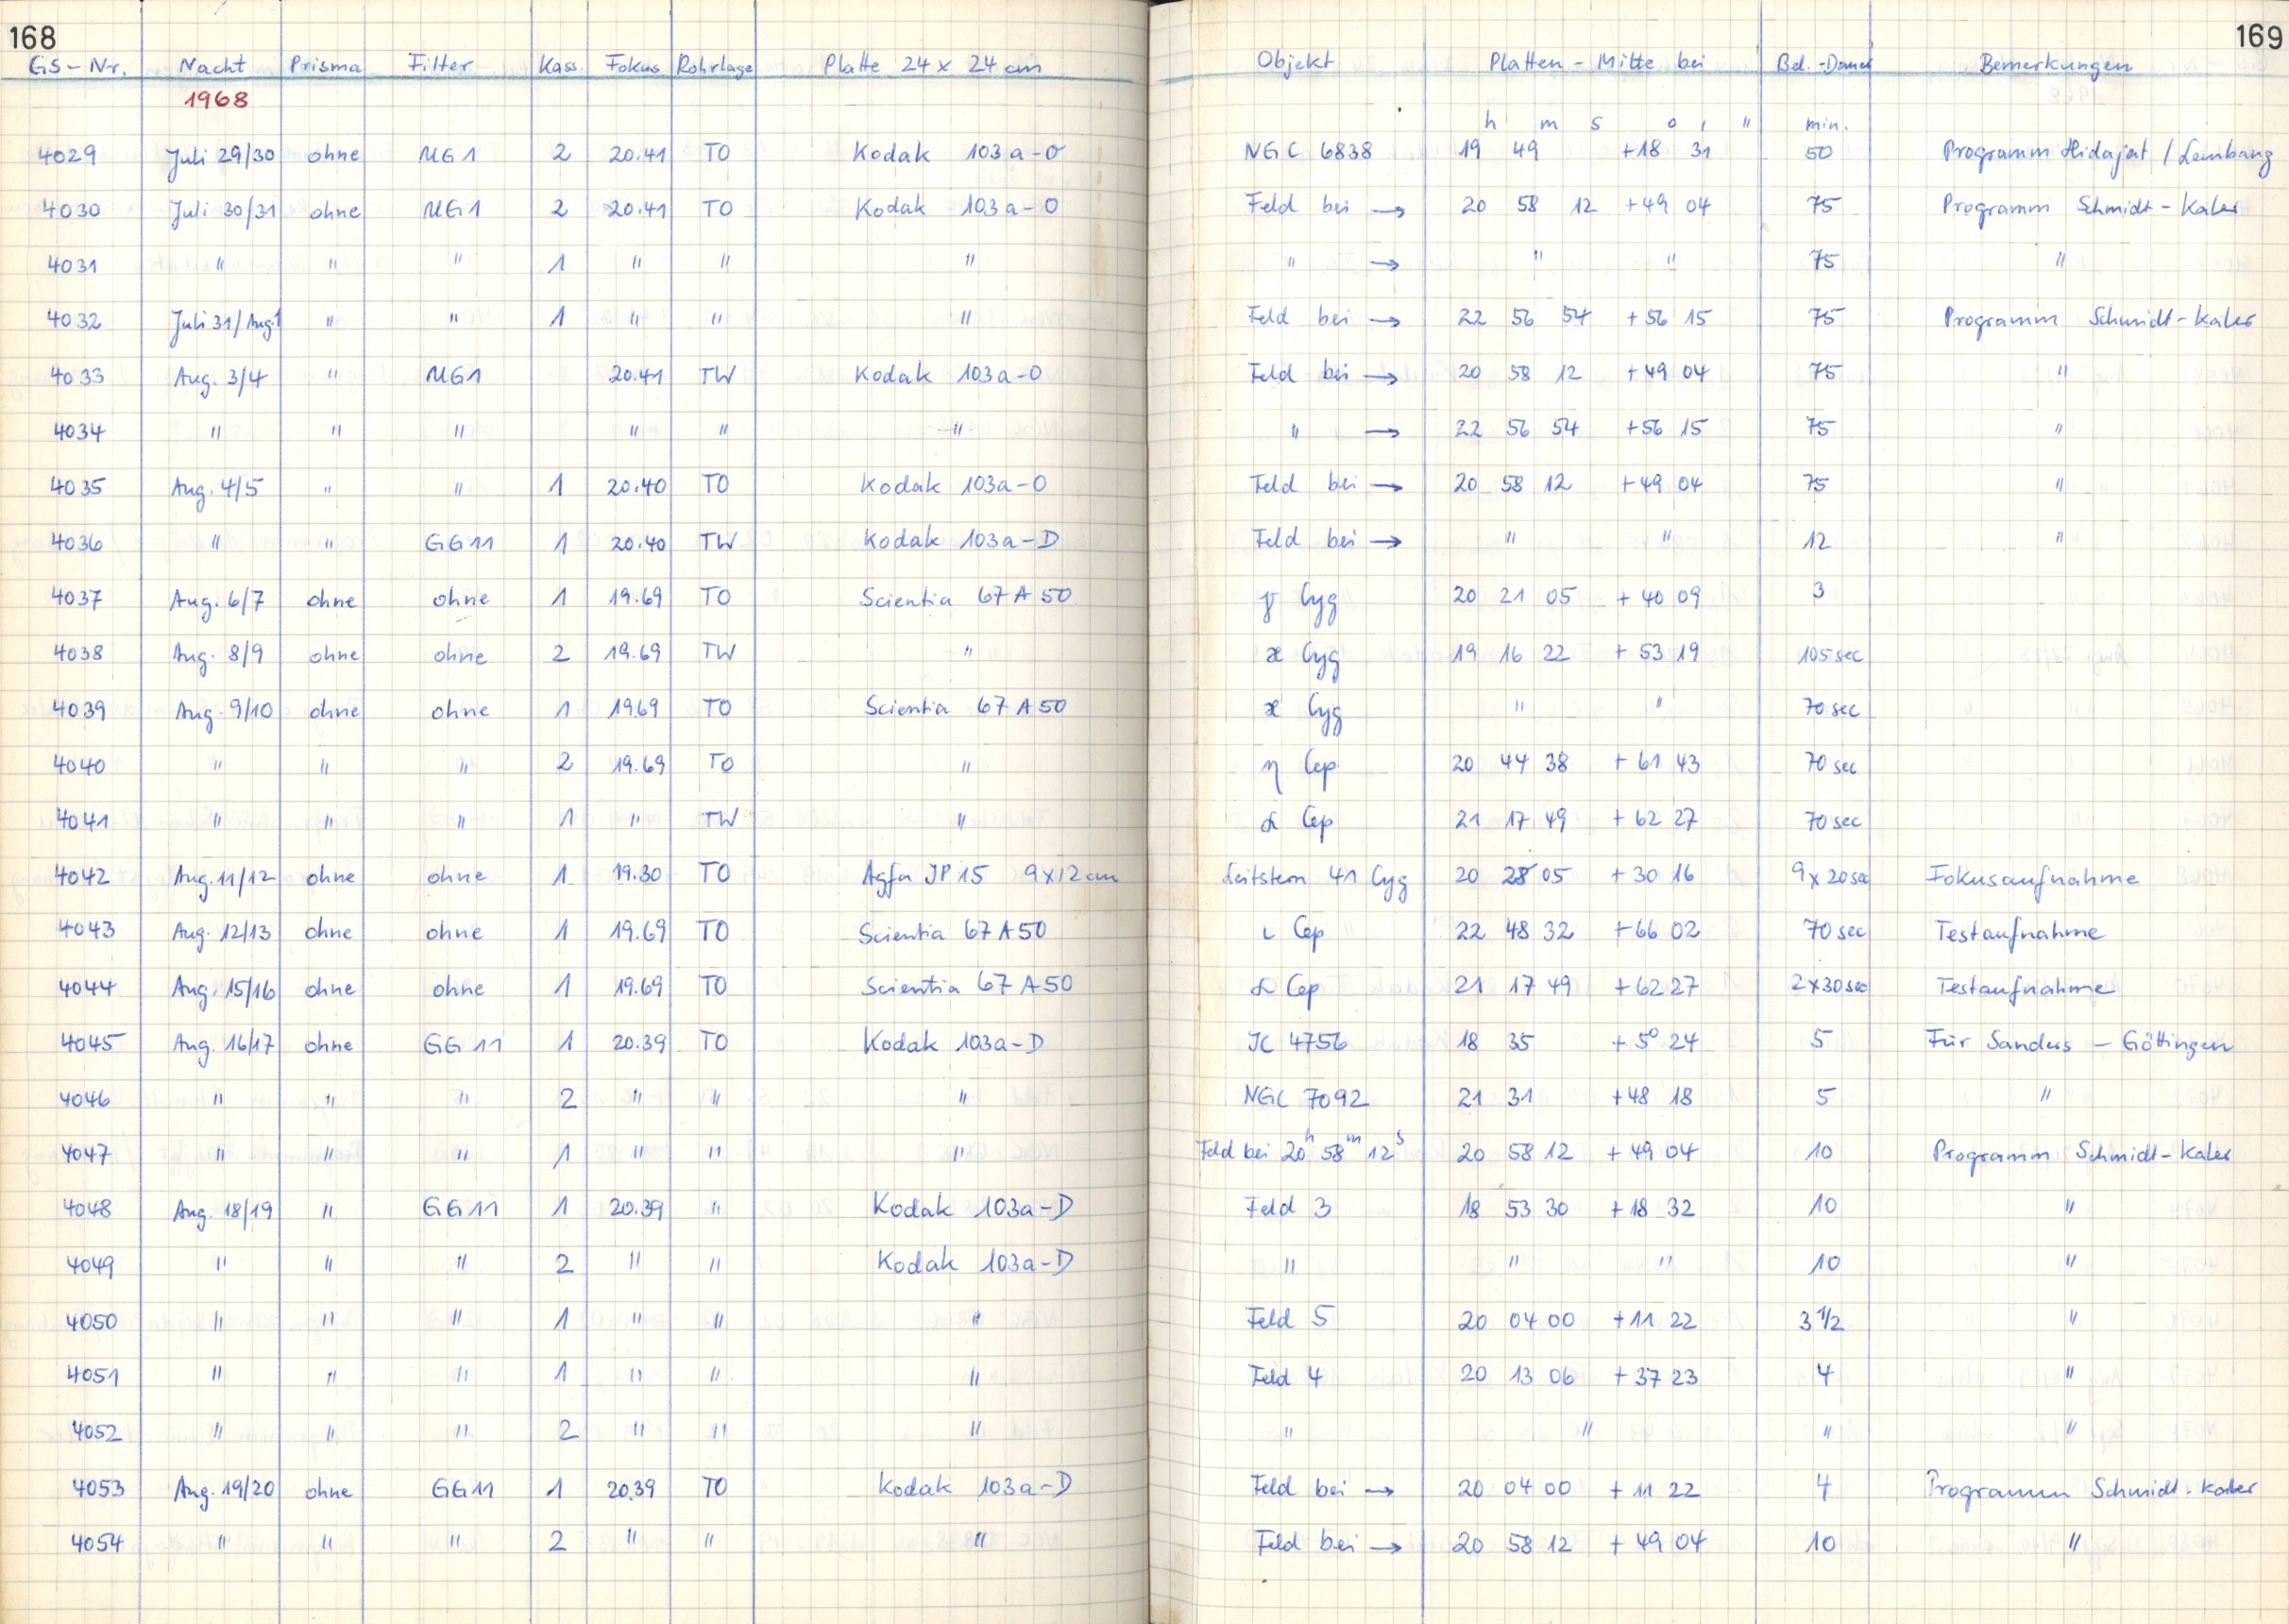 168
169
GS-Nr. Nacht Prisma Filter Kass. Fokus Rohrlage Platte 24 x 24 cm Objekt Platten-Mitte bei Bel.-Dauer Bemerkungen
1968
h m s o ' " min.
4029 Juli 29/30 ohne UG1 2 20.41 TO Kodak 103a-O NGC 6838 19 49 +18 31 50 Programm Hidajat / Lembang
4030 Juli 30/31 ohne UG1 2 20.41 TO Kodak 103a-O Feld bei → 20 58 12 +49 04 75 Programm Schmidt-Kaler
4031 " " " 1 " " " " → " " 75 "
4032 Juli 31/Aug.1 " " 1 " " " Feld bei → 22 56 54 +56 15 75 Programm Schmidt-Kaler
4033 Aug. 3/4 " UG1 20.41 TW Kodak 103a-O Feld bei → 20 58 12 +49 04 75 "
4034 " " " " " " " → 22 56 54 +56 15 75 "
4035 Aug. 4/5 " " 1 20.40 TO Kodak 103a-O Feld bei → 20 58 12 +49 04 75 "
4036 " " GG11 1 20.40 TW Kodak 103a-D Feld bei → " " 12 "
4037 Aug. 6/7 ohne ohne 1 19.69 TO Scientia 67 A 50 γ Cyg 20 21 05 +40 09 3
4038 Aug. 8/9 ohne ohne 2 19.69 TW " ϰ Cyg 19 16 22 +53 19 105 sec
4039 Aug. 9/10 ohne ohne 1 19.69 TO Scientia 67 A 50 ϰ Cyg " " 70 sec
4040 " " " 2 19.69 TO " η Cep 20 44 38 +61 43 70 sec
4041 " " " 1 " TW " α Cep 21 17 49 +62 27 70 sec
4042 Aug. 11/12 ohne ohne 1 19.30 TO Agfa JP 15 9x12 cm Leitstern 41 Cyg 20 28 05 +30 16 9 x 20 sec Fokusaufnahme
4043 Aug. 12/13 ohne ohne 1 19.69 TO Scientia 67 A 50 ι Cep 22 48 32 +66 02 70 sec Testaufnahme
4044 Aug. 15/16 ohne ohne 1 19.69 TO Scientia 67 A 50 α Cep 21 17 49 +62 27 2 x 30 sec Testaufnahme
4045 Aug. 16/17 ohne GG 11 1 20.39 TO Kodak 103a-D JC 4756 18 35 +5° 24 5 Für Sanders - Göttingen
4046 " " " 2 " " " NGC 7092 21 31 +48 18 5 "
4047 " " " 1 " " " Feld bei 20h 58m 12s 20 58 12 +49 04 10 Programm Schmidt-Kaler
4048 Aug. 18/19 " GG11 1 20.39 " Kodak 103a-D Feld 3 18 53 30 +18 32 10 "
4049 " " " 2 " " Kodak 103a-D " " " 10 "
4050 " " " 1 " " " Feld 5 20 04 00 +11 22 3 1/2 "
4051 " " " 1 " " " Feld 4 20 13 06 +37 23 4 "
4052 " " " 2 " " " " " " "
4053 Aug. 19/20 ohne GG11 1 20.39 TO Kodak 103a-D Feld bei → 20 04 00 +11 22 4 Programm Schmidt-Kaler
4054 " " " 2 " " " Feld bei → 20 58 12 +49 04 10 "